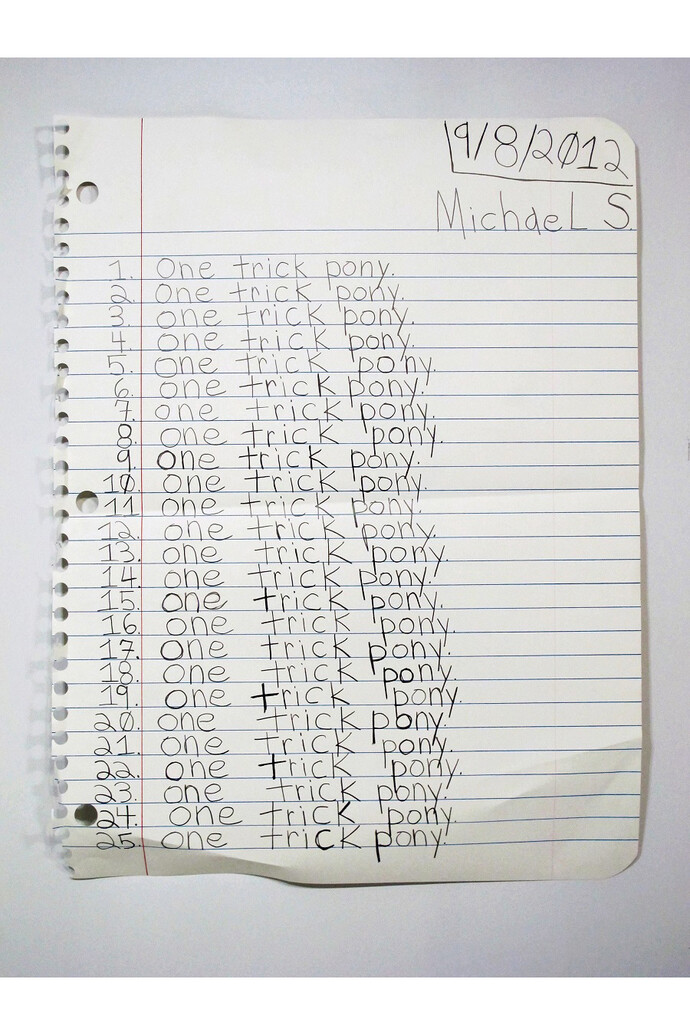 9/8/2012
MichaeL S.
1. One trick pony.
2. One trick pony.
3. one trick pony.
4. one trick pony.
5. one trick pony.
6. one trick pony.
7. one trick pony.
8. one trick pony.
9. one trick pony.
10. one trick pony.
11. one trick pony.
12. one trick pony.
13. one trick pony.
14. one trick pony.
15. one trick pony.
16. one trick pony.
17. one trick pony.
18. one trick pony.
19. one trick pony.
20. one trick pony.
21. one trick pony.
22. one trick pony.
23. one trick pony.
24. one trick pony.
25. one trick pony.